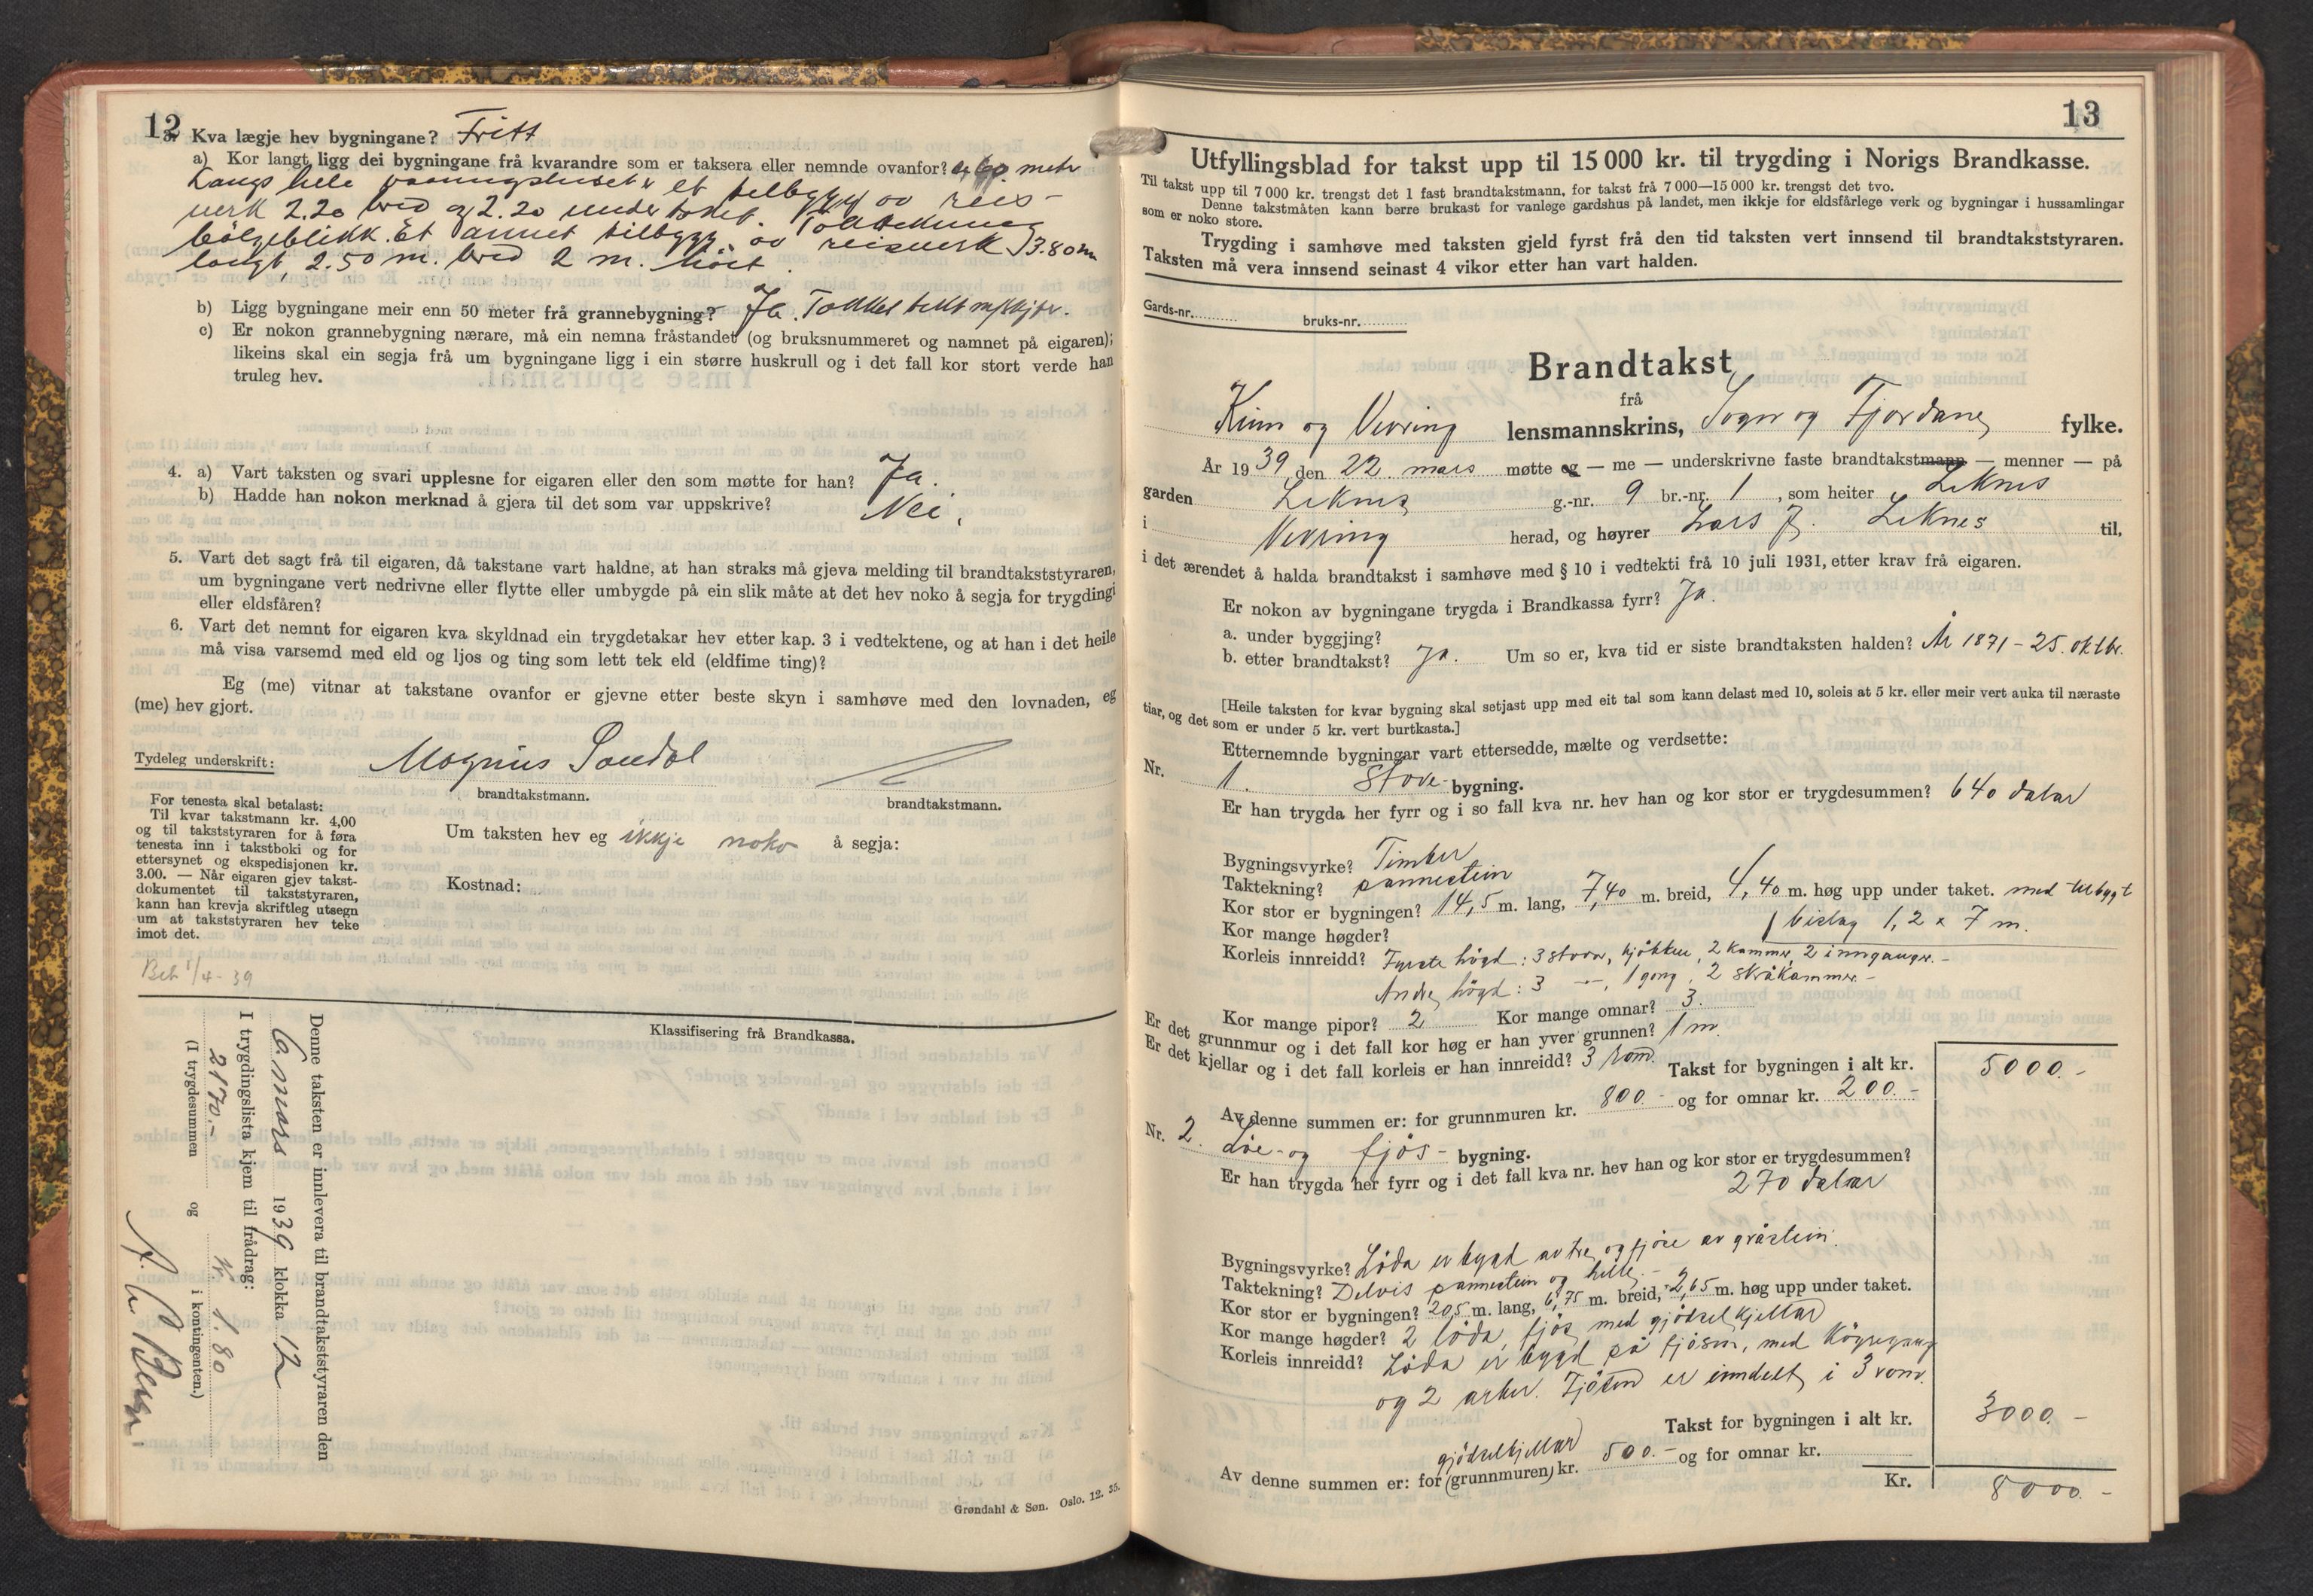 12
3. Kva lægje hev bygningane? Fritt
a) Kor langt ligg dei bygningane frå kvarandre som er taksera eller nemnde ovanfor? 60 meter
Langs hele vaaningshuset er et tilbygg av reis-
verk 2.20 bred og 2.20 under taket. Taktekning
bölgeblikk. Et annet tilbygg av reisverk 3.80 m
langt, 2.50 m. bred 2 m. höit.
b) Ligg bygningane meir enn 50 meter frå grannebygning? Ja. Takket tekt m/skifer.
c) Er nokon grannebygning nærare, må ein nemna fråstandet (og bruksnummeret og namnet på eigaren);
likeins skal ein segja frå um bygningane ligg i ein større huskrull og i det fall kor stort verde han
truleg hev.
4. a) Vart taksten og svari upplesne for eigaren eller den som møtte for han? Ja.
b) Hadde han nokon merknad å gjera til det som var uppskrive? Nei.
5. Vart det sagt frå til eigaren, då takstane vart haldne, at han straks må gjeva melding til brandtakststyraren,
um bygningane vert nedrivne eller flytte eller umbygde på ein slik måte at det hev noko å segja for trygdingi
eller eldsfåren?
6. Vart det nemnt for eigaren kva skyldnad ein trygdetakar hev etter kap. 3 i vedtektene, og at han i det heile
må visa varsemd med eld og ljos og ting som lett tek eld (eldfime ting)?
Eg (me) vitnar at takstane ovanfor er gjevne etter beste skyn i samhøve med den lovnaden, eg
(me) hev gjort.
Tydeleg underskrift: Magnus Sandal
brandtakstmann. brandtakstmann.
For tenesta skal betalast:
Til kvar takstmann kr. 4,00
og til takststyraren for å føra
tenesta inn i takstboki og for
ettersynet og ekspedisjonen kr.
3.00. — Når eigaren gjev takst-
dokumentet til takststyraren,
kann han krevja skriftleg utsegn
um at takststyraren hev teke
imot det.
Um taksten hev eg ikkje noko å segja:
Kostnad:
Bet 1/4-39
Klassifisering frå Brandkassa.
Denne taksten er innlevera til brandtakststyraren den
6 mars 1939 klokka 12
I trygdingslista kjem til frådrag:
2170.- kr. 1.80
(I trygdesummen og i kontingenten.)
Grøndahl & Søn. Oslo. 12. 35.
13
Utfyllingsblad for takst upp til 15 000 kr. til trygding i Norigs Brandkasse.
Til takst upp til 7 000 kr. trengst det 1 fast brandtakstmann, for takst frå 7 000—15 000 kr. trengst det tvo.
Denne takstmåten kann berre brukast for vanlege gardshus på landet, men ikkje for eldsfårlege verk og bygningar i hussamlingar
som er noko store.
Trygding i samhøve med taksten gjeld fyrst frå den tid taksten vert innsend til brandtakststyraren.
Taksten må vera innsend seinast 4 vikor etter han vart halden.
Gards-nr. bruks-nr.
Brandtakst
frå
Kinn og Vevring lensmannskrins, Sogn og Fjordane fylke.
År 1939 den 22. mars møtte eg — me — underskrivne faste brandtakstmann — menner — på
garden Leknes g.-nr. 9 br.-nr. 1, som heiter Leknes
i Vevring herad, og høyrer Lars J. Leknes til,
i det ærendet å halda brandtakst i samhøve med § 10 i vedtekti frå 10 juli 1931, etter krav frå eigaren.
Er nokon av bygningane trygda i Brandkassa fyrr? Ja.
a. under byggjing?
b. etter brandtakst? Ja. Um so er, kva tid er siste brandtaksten halden? År 1871 - 25. oktbr.
[Heile taksten for kvar bygning skal setjast upp med eit tal som kann delast med 10, soleis at 5 kr. eller meir vert auka til næraste
tiar, og det som er under 5 kr. vert burtkasta.]
Etternemnde bygningar vart ettersedde, mælte og verdsette:
Nr. 1. Stove-bygning.
Er han trygda her fyrr og i so fall kva nr. hev han og kor stor er trygdesummen? 640 dalar
Bygningsvyrke? Timber
Taktekning? pannestein
Kor stor er bygningen? 14,5 m. lang, 7,40 m. breid, 4,40 m. høg upp under taket. med tilbygt
Kor mange høgder? bislag 1,2 x 7 m.
Korleis innreidd? Fyrste högd: 3 stover, kjökken, 2 kammer, 2 innganger.-
Andre högd: 3 —"—, 1 gong, 2 skråkammer.-
Kor mange pipor? 2 Kor mange omnar? 3.
Er det grunnmur og i det fall kor høg er han yver grunnen? 1 m.
Er det kjellar og i det fall korleis er han innreidd? 3 rom.
Takst for bygningen i alt kr. 5000.-
Av denne summen er: for grunnmuren kr. 800.- og for omnar kr. 200.-
Nr. 2. Löe- og fjös-bygning.
Er han trygda her fyrr og i det fall kva nr. hev han og kor stor er trygdesummen?
270 dalar
Bygningsvyrke? Löda er bygd av tre og fjöse av gråstein.
Taktekning? Delvis pannestein og helle.-
Kor stor er bygningen? 20,5 m. lang, 6,75 m. breid, 2,65 m. høg upp under taket.
Kor mange høgder? 2 löda, fjös med gjödselkjellar
Korleis innreidd? Löda er bygd på fjösen, med köyregang
og 2 arker. Fjösen er inndelt i 3 rom.
Takst for bygningen i alt kr. 3000.-
gjödselkjellar
Av denne summen er: for (grunnmuren) kr. 500.- og for omnar kr.
Kr. 8000.-